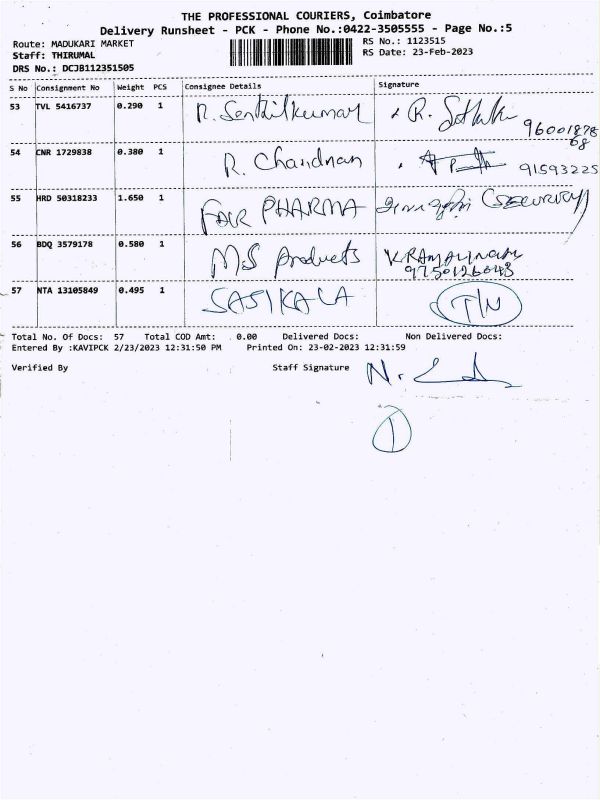 THE PROFESSIONAL COURIERS, Coimbatore
Delivery Runsheet - PCK - Phone No.:0422-3505555 - Page No.:5
Route: MADUKARI MARKET RS No.: 1123515
Staff: THIRUMAL RS Date: 23-Feb-2023
DRS No.: DCJB112351505
S No Consignment No Weight PCS Consignee Details Signature
53 TVL 5416737 0.290 1 R. Senthilkumar R.
9600187868
54 CNR 1729838 0.380 1 R. Chandran 91593225
55 HRD 50318233 1.650 1 FAIR PHARMA (SECURITY)
56 BDQ 3579178 0.580 1 MS Products
9750126048
57 NTA 13105849 0.495 1 SASIKALA T/N
Total No. Of Docs: 57 Total COD Amt: 0.00 Delivered Docs: Non Delivered Docs:
Entered By :KAVIPCK 2/23/2023 12:31:50 PM Printed On: 23-02-2023 12:31:59
Verified By Staff Signature N.
1